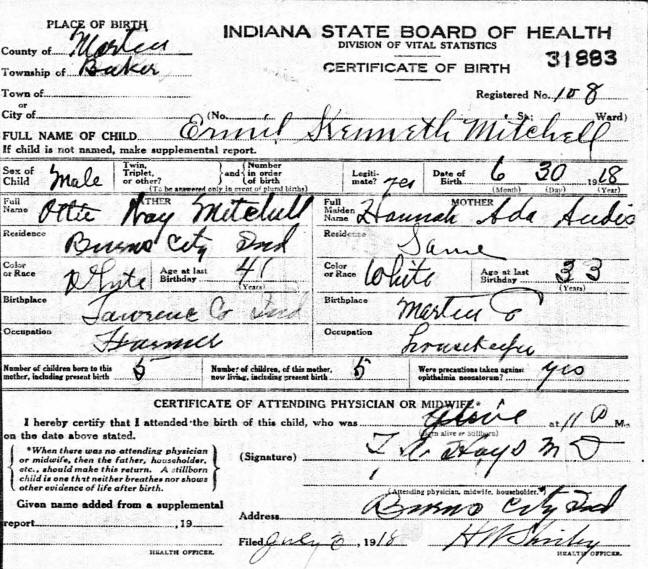 PLACE OF BIRTH
INDIANA STATE BOARD OF HEALTH
DIVISION OF VITAL STATISTICS
CERTIFICATE OF BIRTH
31883
County of Martin
Township of Baker
Town of
or
City of
Registered No. 108
(No. St; Ward)
FULL NAME OF CHILD Kenneth Mitchell
If child is not named, make supplemental report.
Sex of Child Male
Twin, Triplet, or other? and Number in order of birth
(To be answered only in event of plural births)
Legitimate? yes
Date of Birth 6 30 1918
(Month) (Day) (Year)
FATHER
Full Name Ottie Mitchell
MOTHER
Full Maiden Name Hannah Ada
Residence Burns City Ind
Residence Same
Color or Race White
Age at last Birthday 41
(Years)
Color or Race White
Age at last Birthday 33
(Years)
Birthplace Lawrence Co Ind
Birthplace Martin Co
Occupation Farmer
Occupation housekeeper
Number of children born to this mother, including present birth 5
Number of children, of this mother, now living, including present birth 5
Were precautions taken against ophthalmia neonatorum? yes
CERTIFICATE OF ATTENDING PHYSICIAN OR MIDWIFE*
I hereby certify that I attended the birth of this child, who was alive at 11 P M.
(Born alive or stillborn)
on the date above stated.
*When there was no attending physician
or midwife, then the father, householder,
etc., should make this return. A stillborn
child is one that neither breathes nor shows
other evidence of life after birth.
(Signature) Hays M D
(Attending physician, midwife, householder.*)
Given name added from a supplemental
report , 19
HEALTH OFFICER.
Address Burns City Ind
Filed July 1918
HEALTH OFFICER.